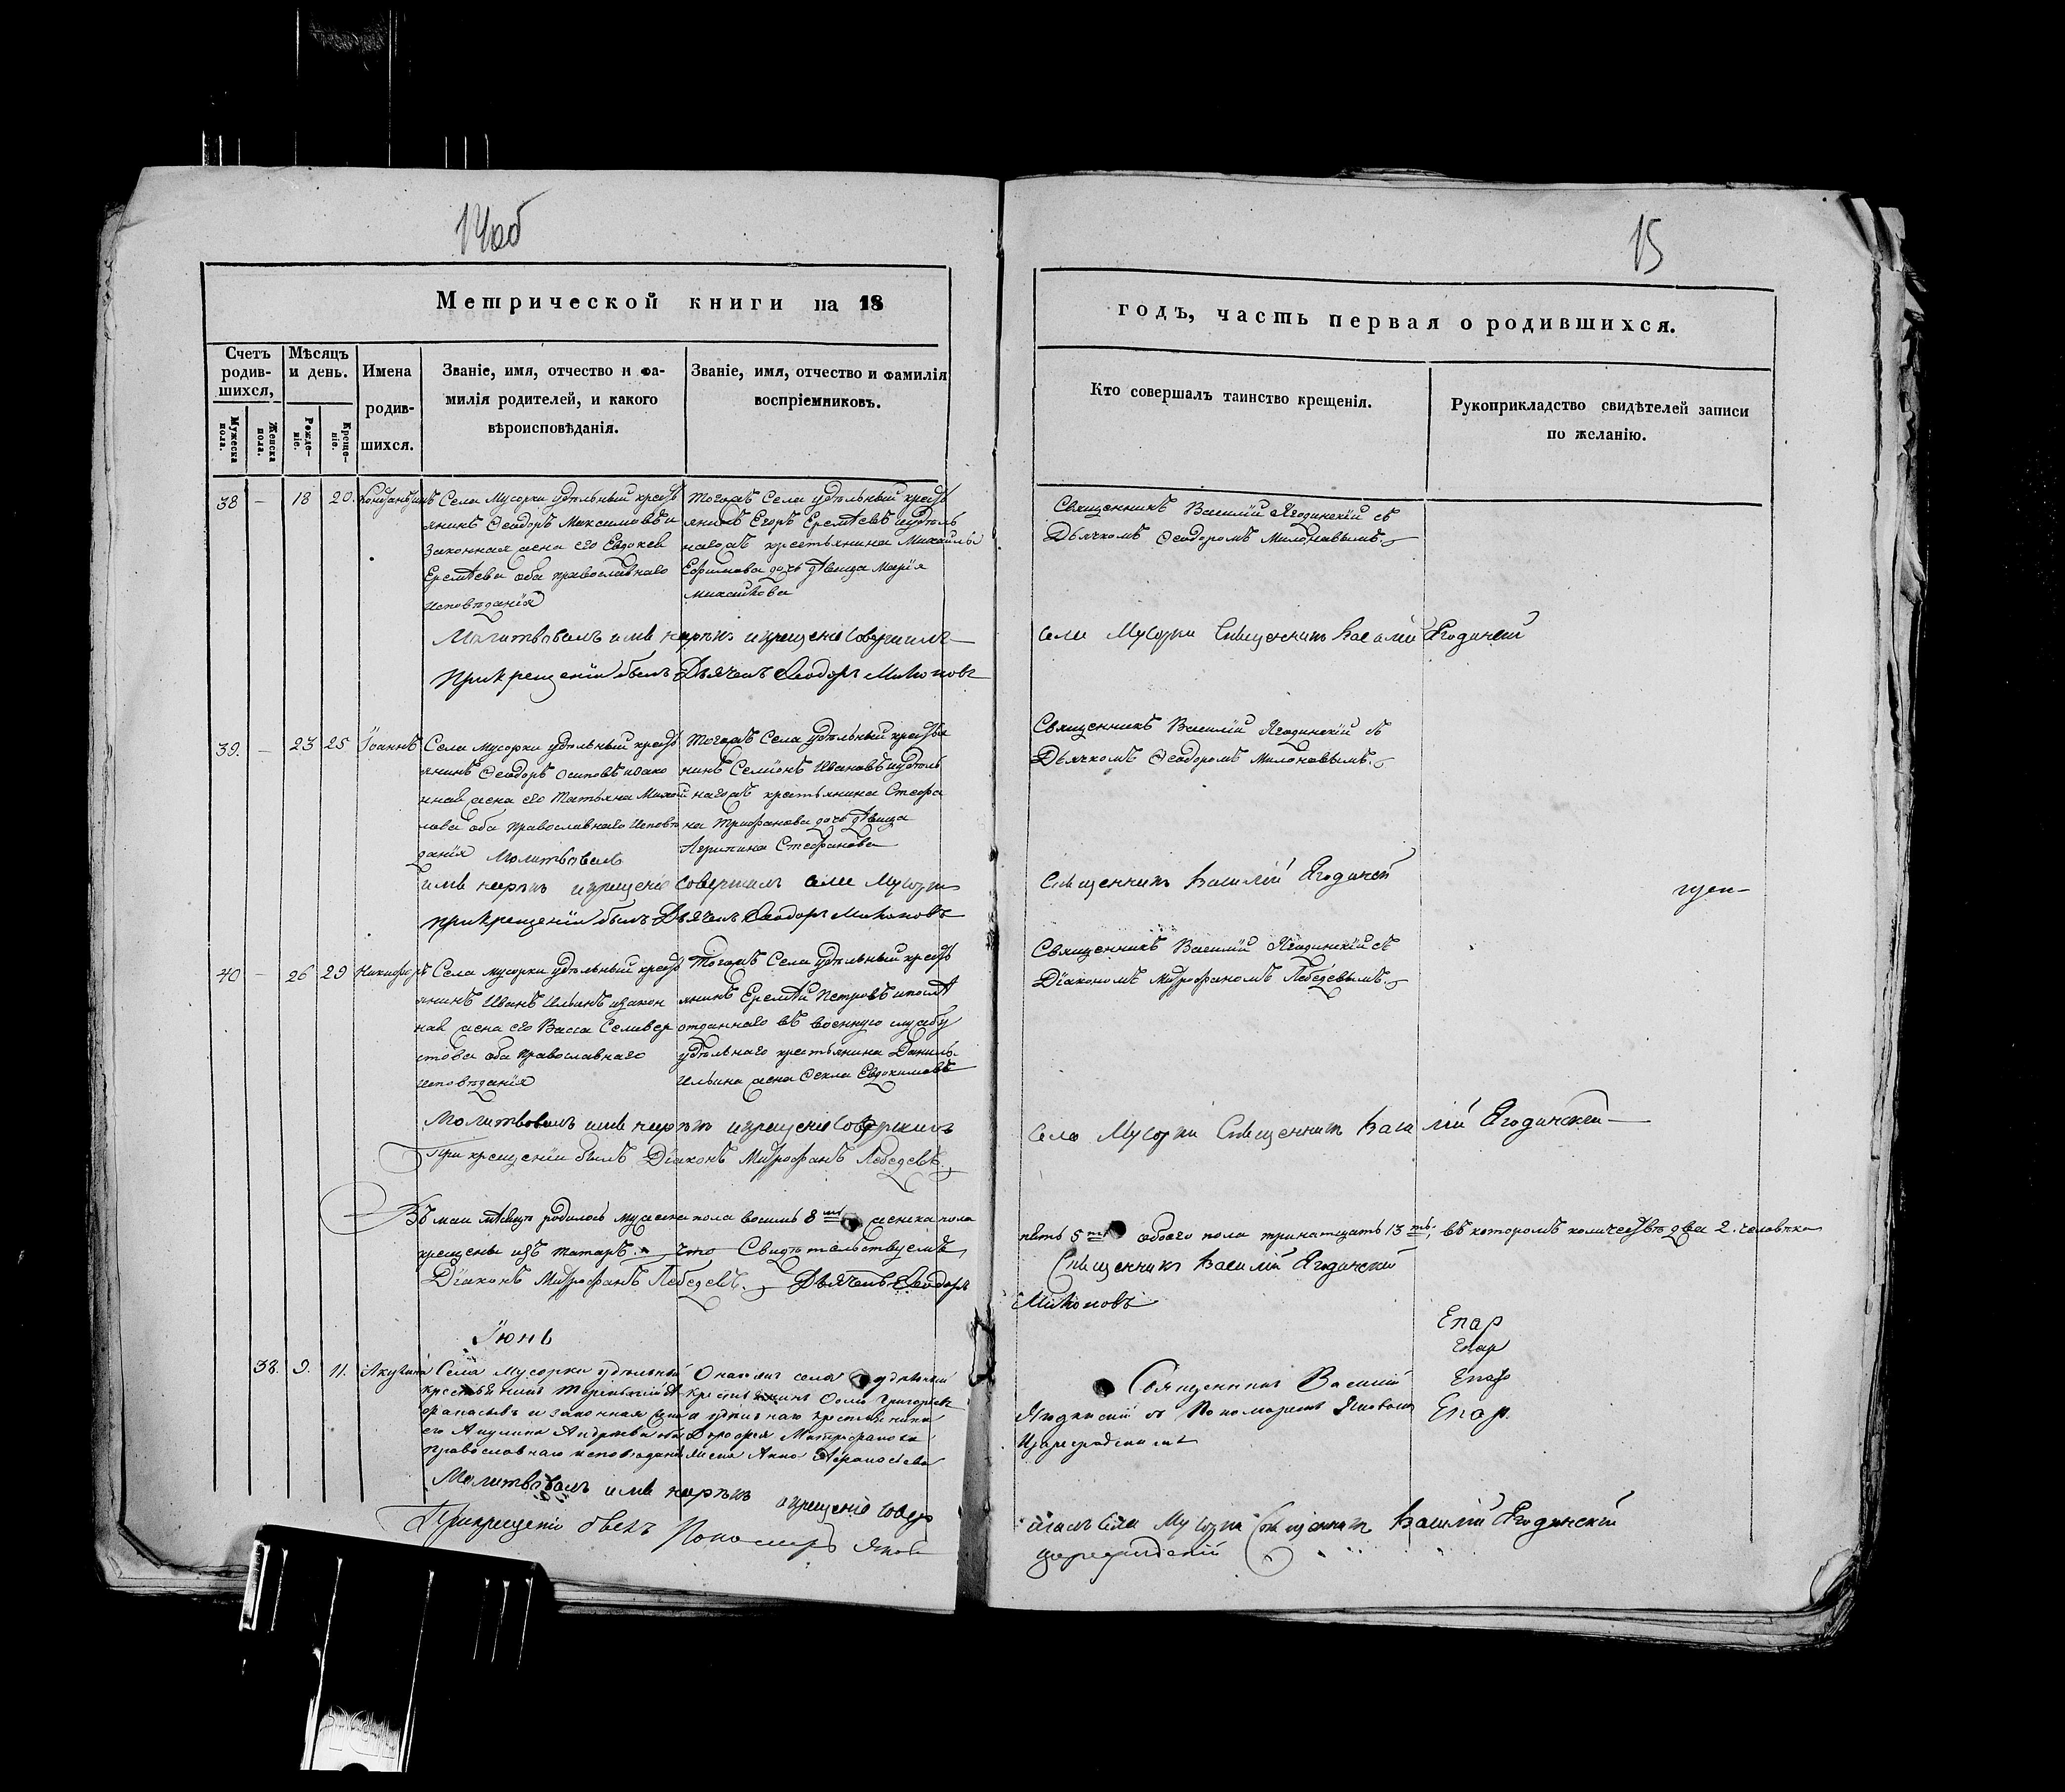 14об
15
Метрической книги на 18
годъ, часть первая о родившихся.
Счетъ родив-шихся,
Мужеска пола.
Женска пола.
Мѣсяцъ и день.
Рожде-ніе.
Креще-ніе.
Имена
родив-
шихся.
Званіе, имя, отчество и фа-
милія родителей, и какого
вѣроисповѣданія.
Званіе, имя, отчество и фамилія
воспріемниковъ.
Кто совершалъ таинство крещенія.
Рукоприкладство свидѣтелей записи
по желанію.
38 — 18 20.
Села Мусорки удѣльный крест
янинъ Ѳеодоръ Максимовъ и
законная жена его Евдокея
Еремѣева оба православнаго
исповѣданія
тогожъ Села удѣльный крест
янинъ Егоръ Еремѣевъ и удѣль
нагожъ крестьянина Михаила
Ефимова дочь дѣвица Марія
Михайлова
Священникъ Василій Ягодинскій съ
Дьячкомъ Ѳеодоромъ Милоновымъ.
Молитвовалъ имя нарекъ и крещеніе совершилъ
села Мусорки Священникъ Василій Ягодинскій
При крещеніи былъ Дьячекъ Ѳеодоръ Милоновъ
39. — 23 25 Іоаннъ
Села Мусорки удѣльный крест
янинъ Ѳеодоръ Осиповъ и зако
нная жена его Татьяна Михай
лова оба православнаго исповѣ
данія Молитвовалъ
Тогожъ Села удѣльный крестья
нинъ Семіонъ Ивановъ и удѣль
нагожъ крестьянина Стефа
на Трифанова дочь дѣвица
Агрипина Стефанова
Священникъ Василій Ягодинскій съ
Дьячкомъ Ѳеодоромъ Милоновымъ.
имя нарекъ и крещеніе совершилъ села Мусорки
Священникъ Василій Ягодинскій
При крещеніи былъ Дьячекъ Ѳеодоръ Милоновъ
40 — 26 29 Никифоръ
Села Мусорки удѣльный крест
янинъ Иванъ Ильинъ и закон
ная жена его Васса Селивер
стова оба православнаго
исповѣданія
Тогожъ Села удѣльный крест
янинъ Еремѣй Петровъ и послѣ
отданнаго въ военную службу
удѣльнаго крестьянина Данилы
Ильина жена Ѳекла Евдокимова
Священникъ Василій Ягодинскій съ
Діакономъ Митрофаномъ Лебедевымъ.
Молитвовалъ имя нарекъ и крещеніе совершилъ
села Мусорки Священникъ Василій Ягодинскій
При крещеніи былъ Діаконъ Митрофанъ Лебедевъ
Въ маи мѣсяцѣ родилось мужеска пола восемь 8 женска пола
пять 5 обоего пола тринатцать 13, въ которомъ количествѣ два 2. человѣка
крещены изъ татаръ. что Свидѣтельствуемъ
Священникъ Василій Ягодинскій
Діаконъ Митрофанъ Лебедевъ. Дьячекъ Ѳеодоръ
Милоновъ
Іюнь
38. 9. 11. Акулина
Села Мусорки удѣльный
крестьянинъ
и законная жена
его Акулина Андреева оба
православнаго исповѣданія
Онагожъ села удѣльный
крестьянинъ Григорьевъ
и удѣльнаго крестьянина
Дорофея Митрофанова
жена Анна
Священникъ Василій
Ягодинскій съ Пономаремъ Яковомъ
Цареградскимъ
Епар
Епар
Епар
Епар.
Молитвовалъ имя нарекъ и крещеніе совер
шалъ села Мусорки Священникъ Василій Ягодинскій
При крещеніи былъ Пономарь Яковъ
Цареградскій